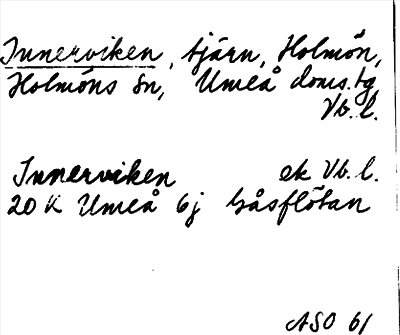 Innerviken, tjärn, Holmön,
Holmöns sn, Umeå doms.tg,
Vb. l.
Innerviken ek Vb. l.
20 K Umeå 6j Gåsflötan
ASO 61